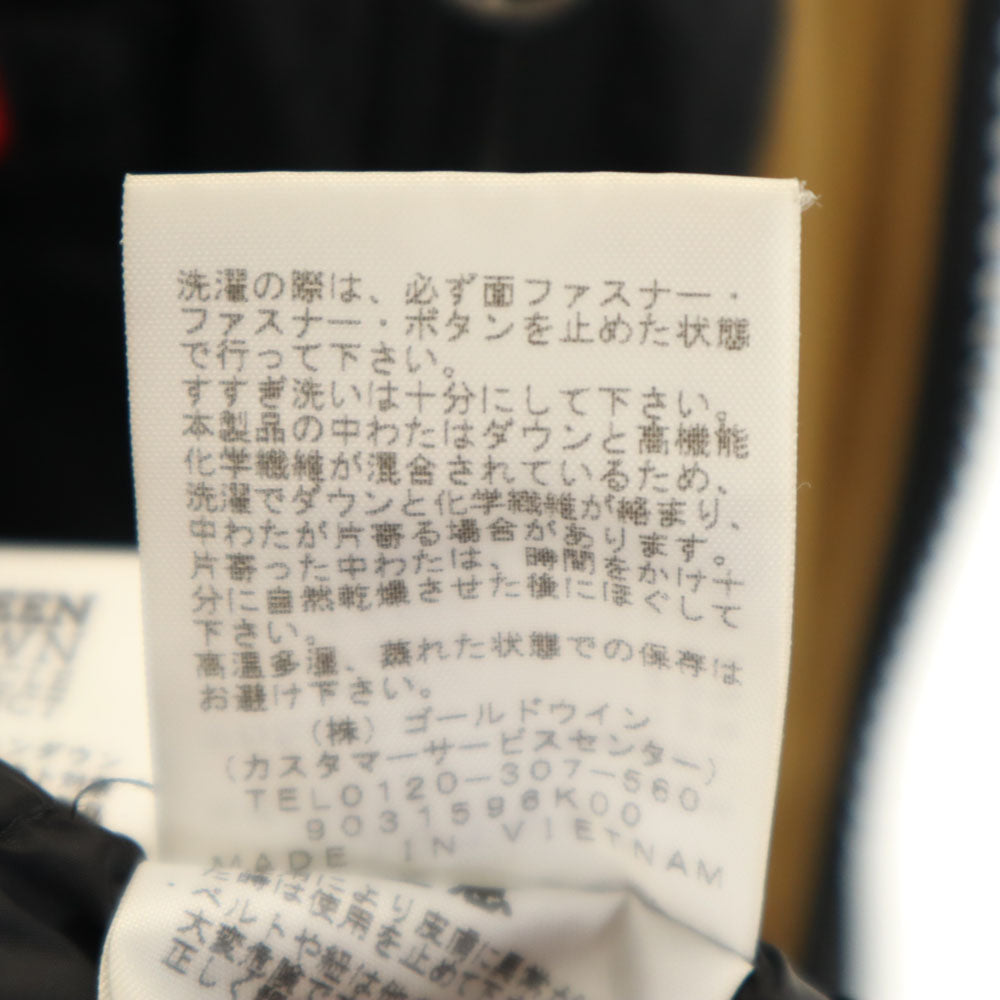 洗濯の際は、必ず面ファスナー・
ファスナー・ボタンを止めた状態
で行って下さい。
すすぎ洗いは十分にして下さい。
本製品の中わたはダウンと高機能
化学繊維が混合されているため、
洗濯でダウンと化学繊維が絡まり、
中わたが片寄る場合があります。
片寄った中わたは、時間をかけ十
分に自然乾燥させた後にほぐして
下さい。
高温多湿、蒸れた状態での保存は
お避け下さい。
(株) ゴールドウイン
(カスタマーサービスセンター)
TEL0120-307-560
9031598K00
MADE IN VIETNAM
EEN
WN
ンダウン
により皮膚に
時は使用を止めて下
ベルトや紐は
大変危険で
正しく